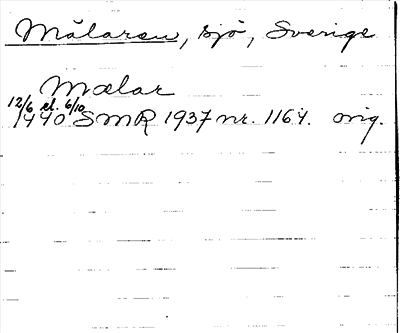 Mälaren, sjö, Sverige
Mælar
12/6 el. 6/10
1440 SMR 1937 nr. 1164. orig.